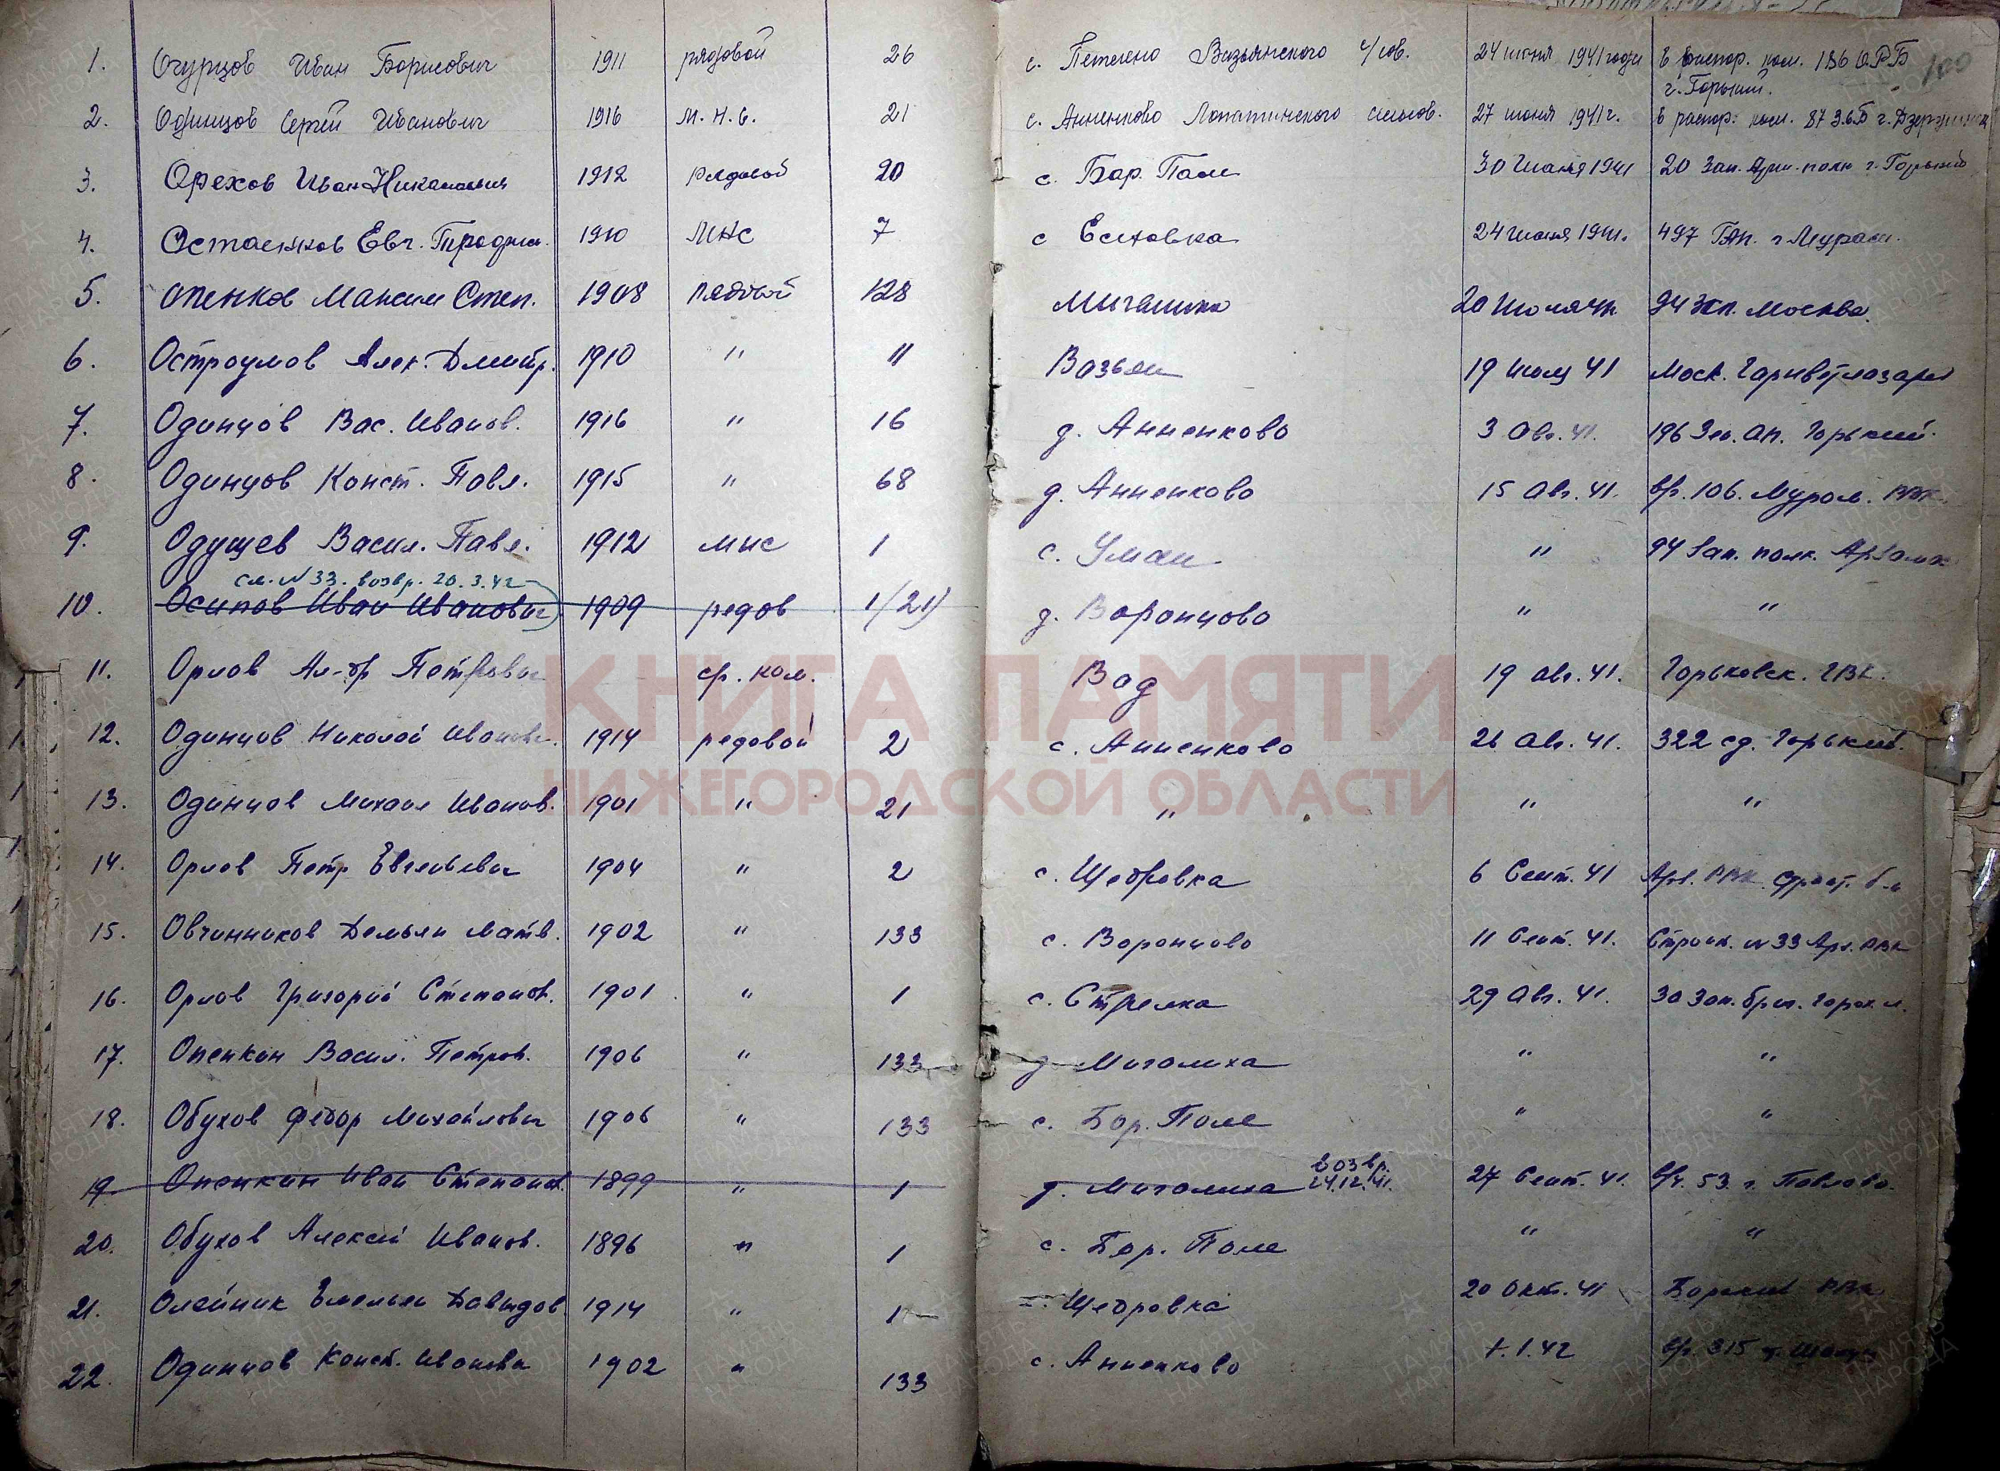 1. Огурцов Иван Борисович 1911 рядовой 26 с. Петлено Вазьянского с/сов. 24 июня 1941 года в распор. ком. 186 ОРБ г. Горький. 100
2. Одинцов Сергей Иванович 1916 м.н.с. 21 с. Анненково Лопатинского сельсов. 27 июня 1941 г. в распор. ком. 87 З.б г. Дзержинск
3. Орехов Иван Николаевич 1912 рядовой 20 с. Бар. Поле 30 июня 1941 20 Зап. Арт. полк г. Горький
4. Остаенков Евг. 1910 МНС 7 с Елховка 24 июня 1941. 497 ГАП. г Муром.
5. Опенков Максим Степ. 1908 рядовой 128 Мигалиха 20 июля 41. 94 Зсп. Москва.
6. Остроумов Алек. Дмитр. 1910 " 11 Вазьян 19 июля 41 Моск. Гарветлазарет
7. Одинцов Вас. Иванов. 1916 " 16 д. Анненково 3 Авг. 41. 196 Зен. ап. Горький.
8. Одинцов Конст. Павл. 1915 " 68 д. Анненково 15 Авг. 41. вр. 106. Муром. РВК.
9. Одущев Васил. Павл. 1912 мнс 1 с. Умай " 94 Зап. полк. Арзамас
см. № 33. возвр. 20.3.42
10. Осипов Иван Иванович 1909 редов 1/21) д. Воронцово " "
11. Орлов Ал-др Петрович ср. ком. Вад 19 Авг. 41. Горьковск. ГВК.
12. Одинцов Николай Иванов. 1914 редовой 2 с. Анненково 26 Авг. 41. 322 сд. Горький.
13. Одинцов Михаил Иванов. 1901 " 21 " " "
14. Орлов Петр Евгеньевич 1904 " 2 с. Щедровка 6 Сент. 41 Арз. РВК. строит. б-н
15. Овчинников Демьян Матв. 1902 " 133 с. Воронцово 11 Сент. 41. Строик. № 33 Арз. РВК
16. Орлов Григорий Степанов. 1901. " 1 с. Стрелка 29 Авг. 41. 30 Зап. бриг. Горох.
17. Опенкин Васил. Петров. 1906 " 133 д. Мигалиха " "
18. Обухов Федор Михайлович 1906 " 133 с. Бар. Поле " "
19. Опенкин Иван Степанов. 1899 " 1 д. Мигалиха возвр. 24.12.41. 27 Сент. 41. в/ч. 53. г. Павлово.
20. Обухов Алексей Иванов. 1896 " 1 с. Бар. Поле " "
21. Олейник Емельян Давыдов 1914 " 1 с. Щедровка 20 Окт. 41 Борский РВК
22. Одинцов Конст. Иванович 1902 " 133 с. Анненково 7.1.42 вр. 315
КНИГА ПАМЯТИ
НИЖЕГОРОДСКОЙ ОБЛАСТИ